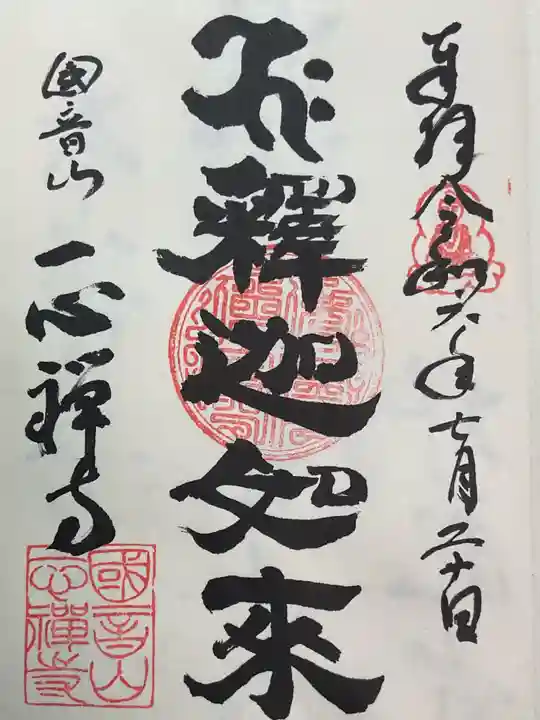 奉拝 令和六年七月二十日
釋迦如来
國音山 一心禅寺
國音山
一心禅寺